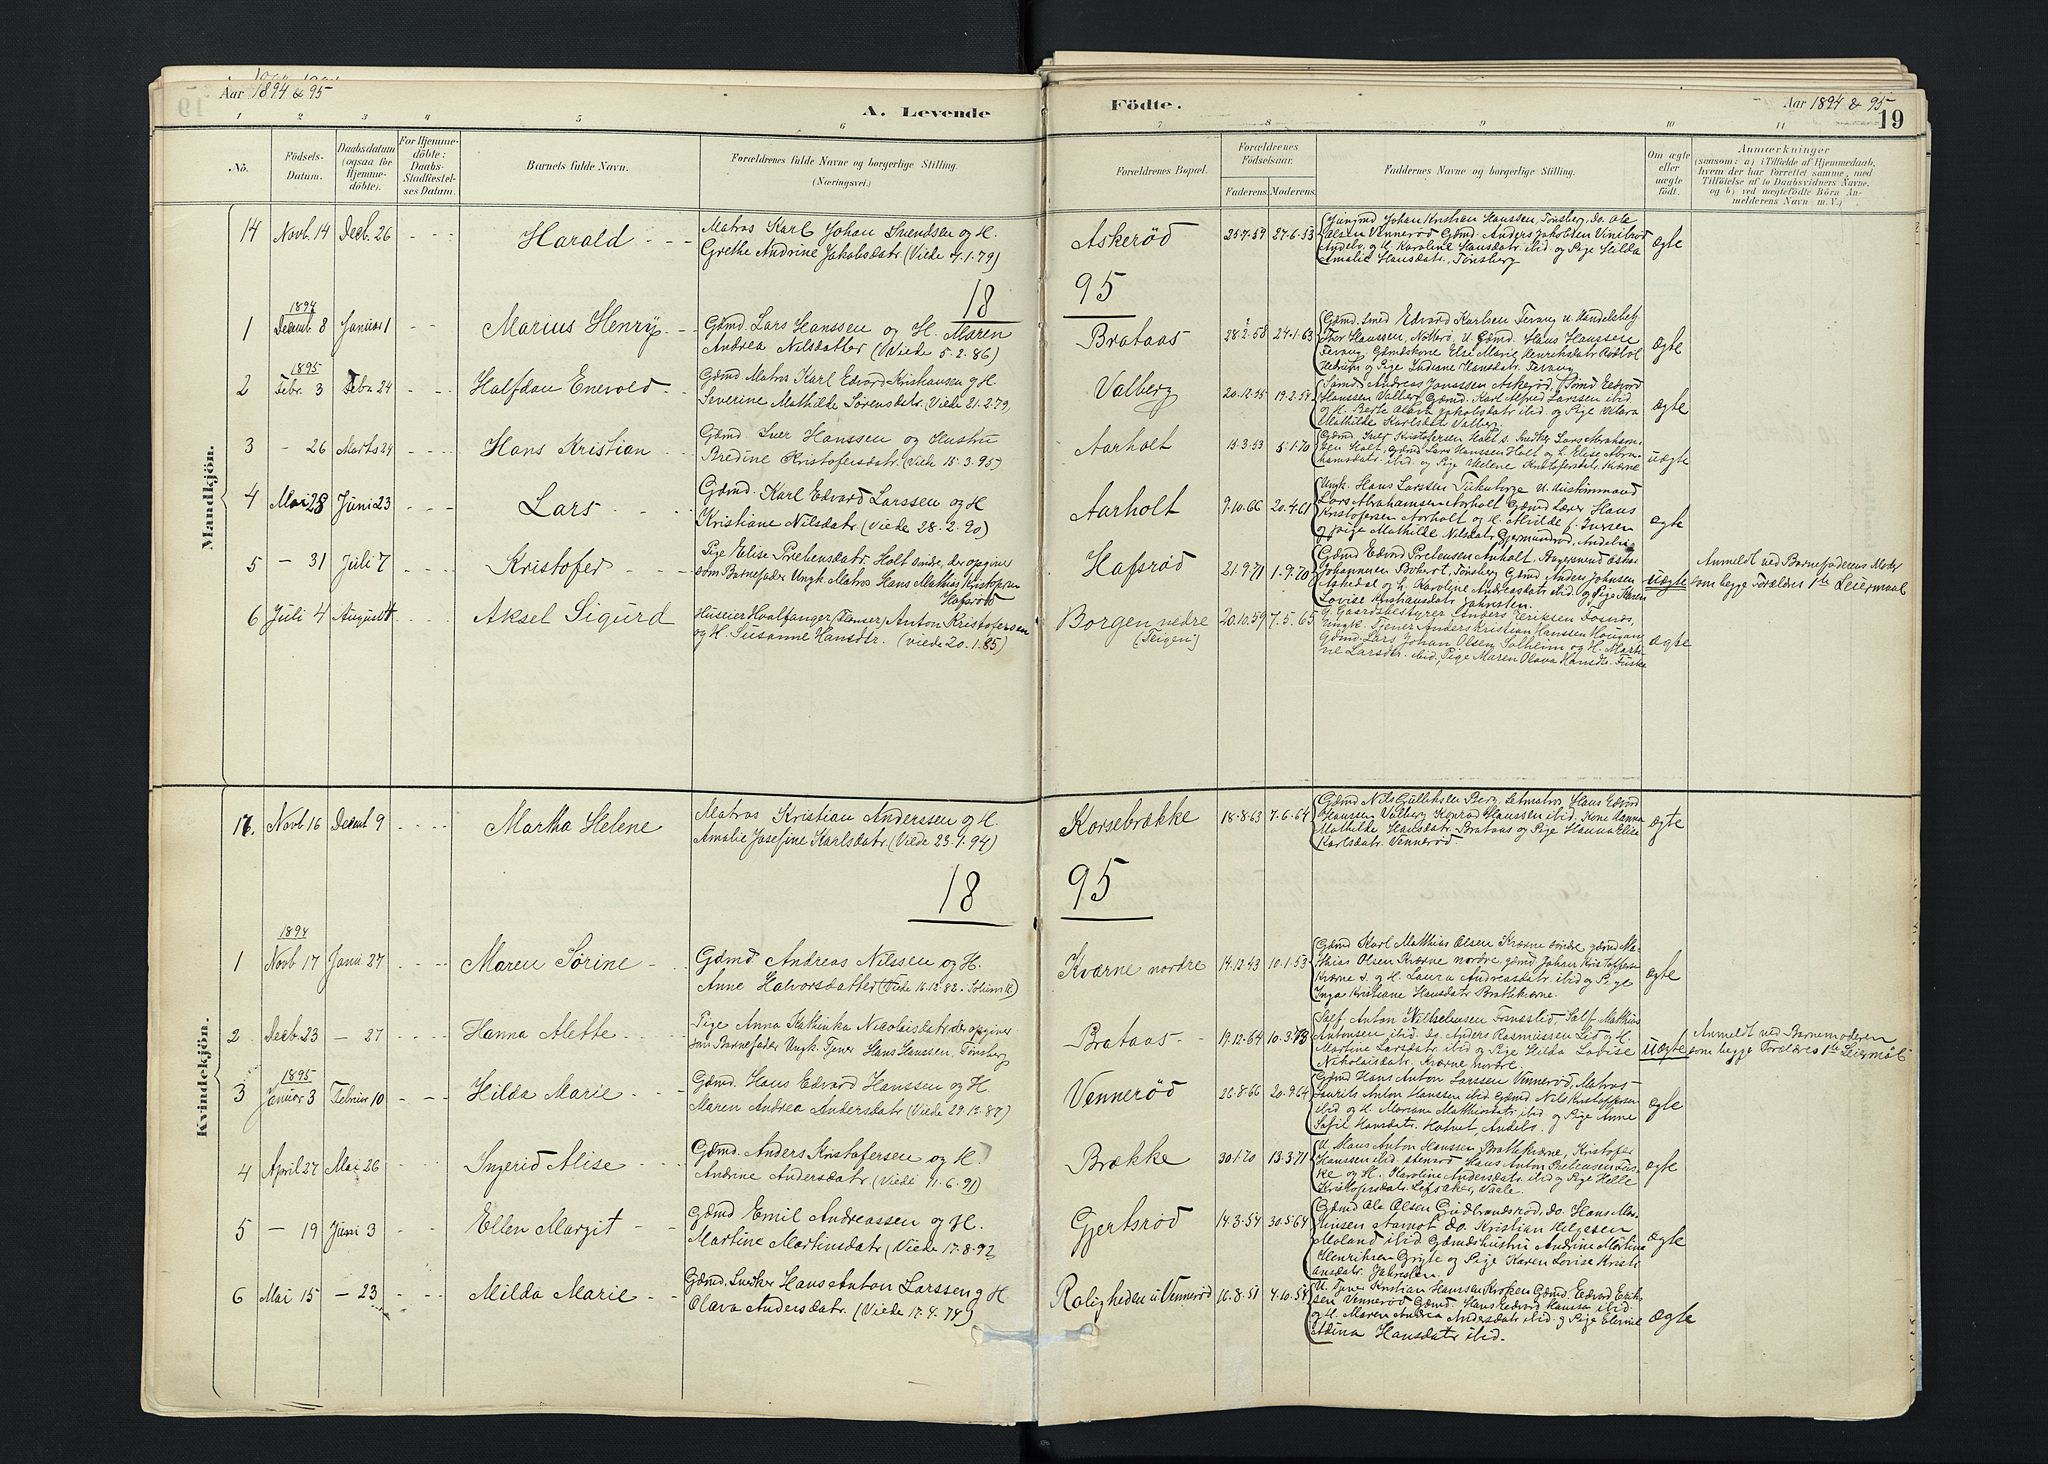 Aar 1894 & 95
A. Levende
Födte.
Aar 1894 & 95
19
1 2 3 4 5 6 7 8 9 10 11
No.
Födsels-
Datum.
Daabsdatum
(ogsaa for
Hjemme-
döbte).
For Hjemme-
döbte:
Daabs-
Stadfæstel-
ses Datum.
Barnets fulde Navn.
Forældrenes fulde Navne og borgerlige Stilling.
(Næringsvei.)
Forældrenes Bopæl.
Forældrenes
Födselsaar.
Faderens. Moderens.
Faddernes Navne og borgerlige Stilling.
Om ægte
eller
uægte
födt.
Anmærkninger
(saasom: a) i Tilfælde af Hjemmedaab,
hvem der har forrettet samme, med
Tilföielse af to Daabsvidners Navne,
og b) ved uægtefödte Börn An-
melderens Navn m. V.)
Mandkjön.
14 Novb. 14 Decb. 26 Harald
Matros Karl Johan Svendsen og H.
Grethe Andrine Jakobsdatr. (Viede 4.1.79)
Askeröd 25.7.59 27.6.53
Johan Kristian Hanssen, Tönsberg, do. Ole
Olsen Venneröd Gdmd. Anders Jakobsen
Andebo og H. Karoline Hansdatr. ibid og Pige Hilda
Amalie Hansdatr. Tönsberg
ægte
18 95
1894
1 Decemb 8 Januar 1 Marius Henry
Gdmd. Lars Hanssen og H. Maren
Andrea Nilsdatter (Viede 5.2.86)
Brataas 28.2.58 24.1.63
Gdmd. Smed Edvard Karlsen Tevang U. Handelsbetj.
Thor Hanssen, Nötterö U. Gdmd. Hans Hanssen
Tevang Gdmdskone Else Marie Henriksdatr
Hedrum og Pige Indiane Hansdatr. Tevang
ægte
1895
2 Febr. 3 Febr 24 Halfdan Enevold
Gdmd Matros Karl Edvard Kristiansen og H.
Severine Mathilde Sörensdatr. (Viede 21.2.79)
Valberg 20.12.55 19.2.54
Andreas Jonassen Askeröd, Edvard
Hanssen Valberg Gdmd. Karl Alfred Larssen ibid
og H. Berte Olava Jakobsdatr ibid og Pige Klara
Mathilde Karlsdatr Valberg.
ægte
3 – 26 Marts 24 Hans Kristian
Gdmd. Iver Hanssen og Hustru
Bredine Kristofersdatr. (Viede 15.3.95)
Aarholt 15.3.53 5.1.70
Gdmd. Iver Kristofersen Holt s. Snedker Lars Abraham-
sen Holt, Gdmd Lars Hanssen Holt og H. Elise Abra-
hamsdatr. ibid og Pige Helene Kristofersdatr. Kværne
uægte
4 Mai 28 Juni 23 Lars
Gdmd. Karl Edvard Larssen og H
Kristiane Nilsdatr (Viede 28.2.90)
Aarholt 9.10.66 20.4.61
Ungk. Hans Larssen U.
Lars Abrahamsen Aarholt Gdmd Lærer Hans
Kristofersen Aarholt og H. Alvilde f. Iversen
og Pige Mathilde Nilsdatr Gjermundröd, Andebo
ægte
5 – 31 Juli 7 Kristofer
Pige Elise Prebensdatr. Holt söndre, der opgiver
som Barnefader Ungk. Matros Hans Mathias Kristofersen
Hafsröd
Hafsröd 21.9.71 1.9.70
Gdmd Edvard Prebensen Aarholt
Johannesen Bobert, Tönsberg Gdmd Anders Johnsen
Askedal og H. Karoline Andreasdatr ibid og Pige Karen
Lovise Kristiansdatr Jahresten.
uægte
Anmeldt ved Barnefaderens Moder
som begge Forældres 1ste Leiermaal
6 Juli 4 August 4 Aksel Sigurd
Huseier Hvalfanger (Flenser) Anton Kristofersen
og H. Susanne Hansdtr. (viede 20.1.85)
Borgen nedre
(Teigen)
20.10.59 7.5.65
G. Gaardsbestyrer Anders Eriksen Fosnæs,
Ungk. Tjener Anders Kristian Hanssen Hougan,
Gdmd. Lars Johan Olsen Solheim og H. Marti-
ne Larsdtr. ibid, Pige Maren Olava Hansdtr. Fuske
ægte
Kvindekjön.
17. Novb 16 Decemb 9 Martha Helene
Matros Kristian Anderssen og H
Amalie Josefine Karlsdatr. (Viede 23.1.94)
Korsebrække 18.8.63 7.6.64
Gdmd Nils Gulliksen Berg, Letmatros Hans Edvard
Hanssen Valberg Konrad Hanssen ibid, Kone Hanna
Mathilde Hansdatr. Brataas og Pige Hanna Elise
Karlsdatr. Venneröd.
ægte
18 95
1894
1 Novb 17 Janu 27 Maren Sörine
Gdmd Andreas Nilssen og H.
Anne Halvorsdatter (Viede 16.12.82. Solum K)
Kværne nordre 14.12.43 10.1.53
Gdmd Karl Matthias Olsen Kværne söndre, gdmd Ma-
thias Olsen Kværne nordre, gdmd Johan Kristoffersen
Kværne s. og H. Laura Andreasdatr ibid og Pige
Inga Kristiane Hansdatr Bratkværne.
ægte
2 Decb. 23 – 27 Hanna Alette
Pige Anna Kathinka Nicolaisdatr der opgiver
som Barnefader Ungk. Tjener Hans Hanssen, Tönsberg
Brataas 19.12.64 10.3.73
Self. Anton Fossnæslid, Self Mathias
Antonsen ibid. Do Anders Rasmussen Lid og H.
Martine Larsdatr ibid og Pige Hilda Lovise
Nikolaisdatr. Kværne nordre.
uægte
Anmeldt ved Barnemoderen
som begge Forældres 1ste Leiermål
1895
3 Januar 3 Februar 10 Hilda Marie
Gdmd. Hans Edvard Hanssen og H.
Maren Andrea Andersdatr (Viede 29.12.87)
Venneröd 26.8.66 20.9.64
Gdmd Hans Anton Larssen Venneröd, Matros
Laurits Anton Hanssen ibid Gdmd Nils Kristoffersen
ibid og H. Mariane Matthisdatr ibid og Pige Anne
Sofie Hansdatr. Hotvet, Andebo.
ægte
4 April 27 Mai 26 Ingerid Alise
Gdmd. Anders Kristofersen og H.
Andrine Andersdatr. (Viede 11.6.91)
Brække 30.1.70 13.3.71
U. Hans Anton Hanssen Bratkværne, Kristofer
Hanssen ibid Hans Anton Prebensen Fus-
ke og H. Karoline Andersdatr ibid og Pige Helle
Kristofersdatr. Lefsaker, Vaale.
ægte
5 – 19 Juni 3 Ellen Margit
Gdmd Emil Andreassen og H.
Martine Martinsdatr (Viede 17.8.92
Gjertsröd 14.3.54 30.5.64
Gdmd Ole Olsen Gudbrandsröd, do. Hans Mar-
tinsen Aamot do. Kristian Helgesen
Moland ibid Gdmdshustru Andrine Martine
Henriksen Gryte og Pige Karen Lovise Kristi-
ansdatr. Jahresten.
ægte
6 Mai 15 – 23 Milda Marie
Gdmd. Snedker Hans Anton Larssen og H.
Olava Andersdatr. (Viede 17.4.74)
Roligheden u/Venneröd 16.8.51 4.10.54
U. Tjener Kristian Hanssen Gdmd. Edvard Erik-
sen Venneröd Gdmd. Hans Edvard Hanssen ibid.
og H. Maren Andrea Andersdatr ibid. og Pige
Adina Hansdatr ibid.
ægte